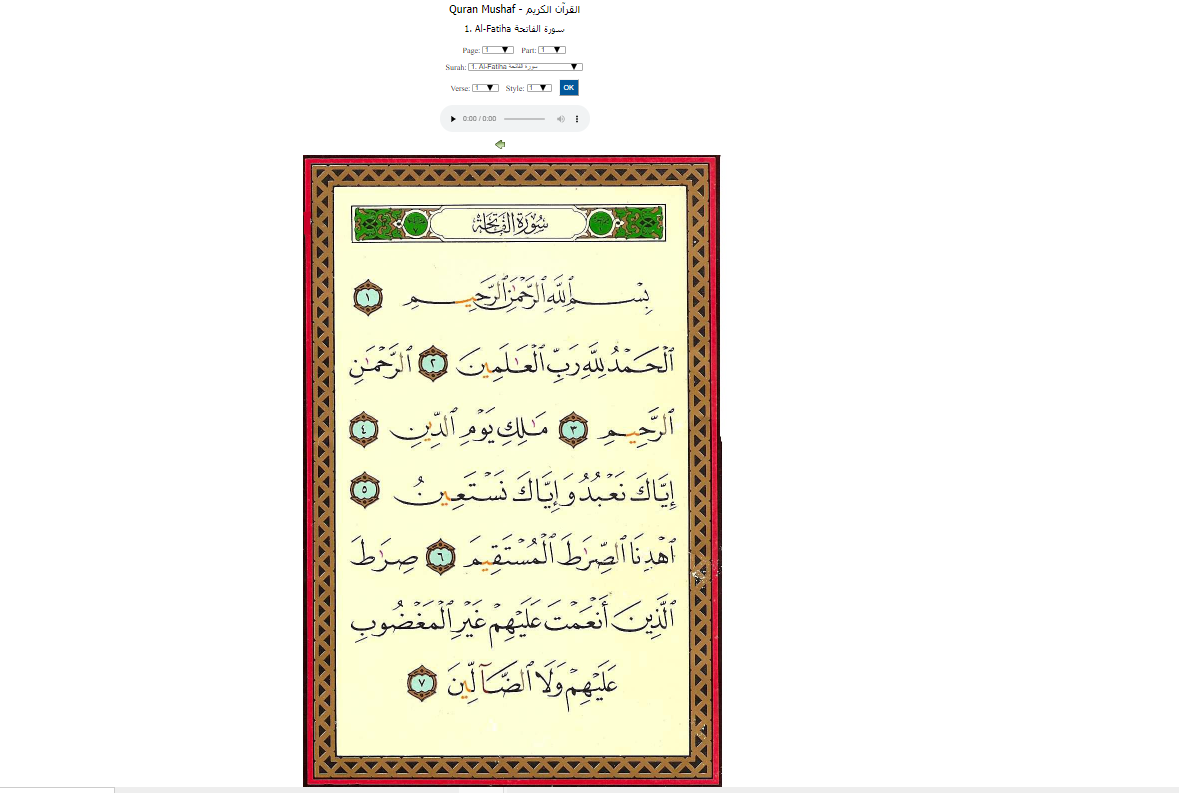 Quran Mushaf - القرآن الكريم
1. Al-Fatiha سورة الفاتحة
Page: 1 Part: 1
Surah: 1. Al-Fatiha سورة الفاتحة
Verse: 1 Style: 1 OK
0:00 / 0:00
سُورَةُ الفَاتِحَة
بِسْمِ ٱللَّهِ ٱلرَّحْمَٰنِ ٱلرَّحِيمِ ١
ٱلْحَمْدُ لِلَّهِ رَبِّ ٱلْعَٰلَمِينَ ٢ ٱلرَّحْمَٰنِ
ٱلرَّحِيمِ ٣ مَٰلِكِ يَوْمِ ٱلدِّينِ ٤
إِيَّاكَ نَعْبُدُ وَإِيَّاكَ نَسْتَعِينُ ٥
ٱهْدِنَا ٱلصِّرَٰطَ ٱلْمُسْتَقِيمَ ٦ صِرَٰطَ
ٱلَّذِينَ أَنْعَمْتَ عَلَيْهِمْ غَيْرِ ٱلْمَغْضُوبِ
عَلَيْهِمْ وَلَا ٱلضَّآلِّينَ ٧